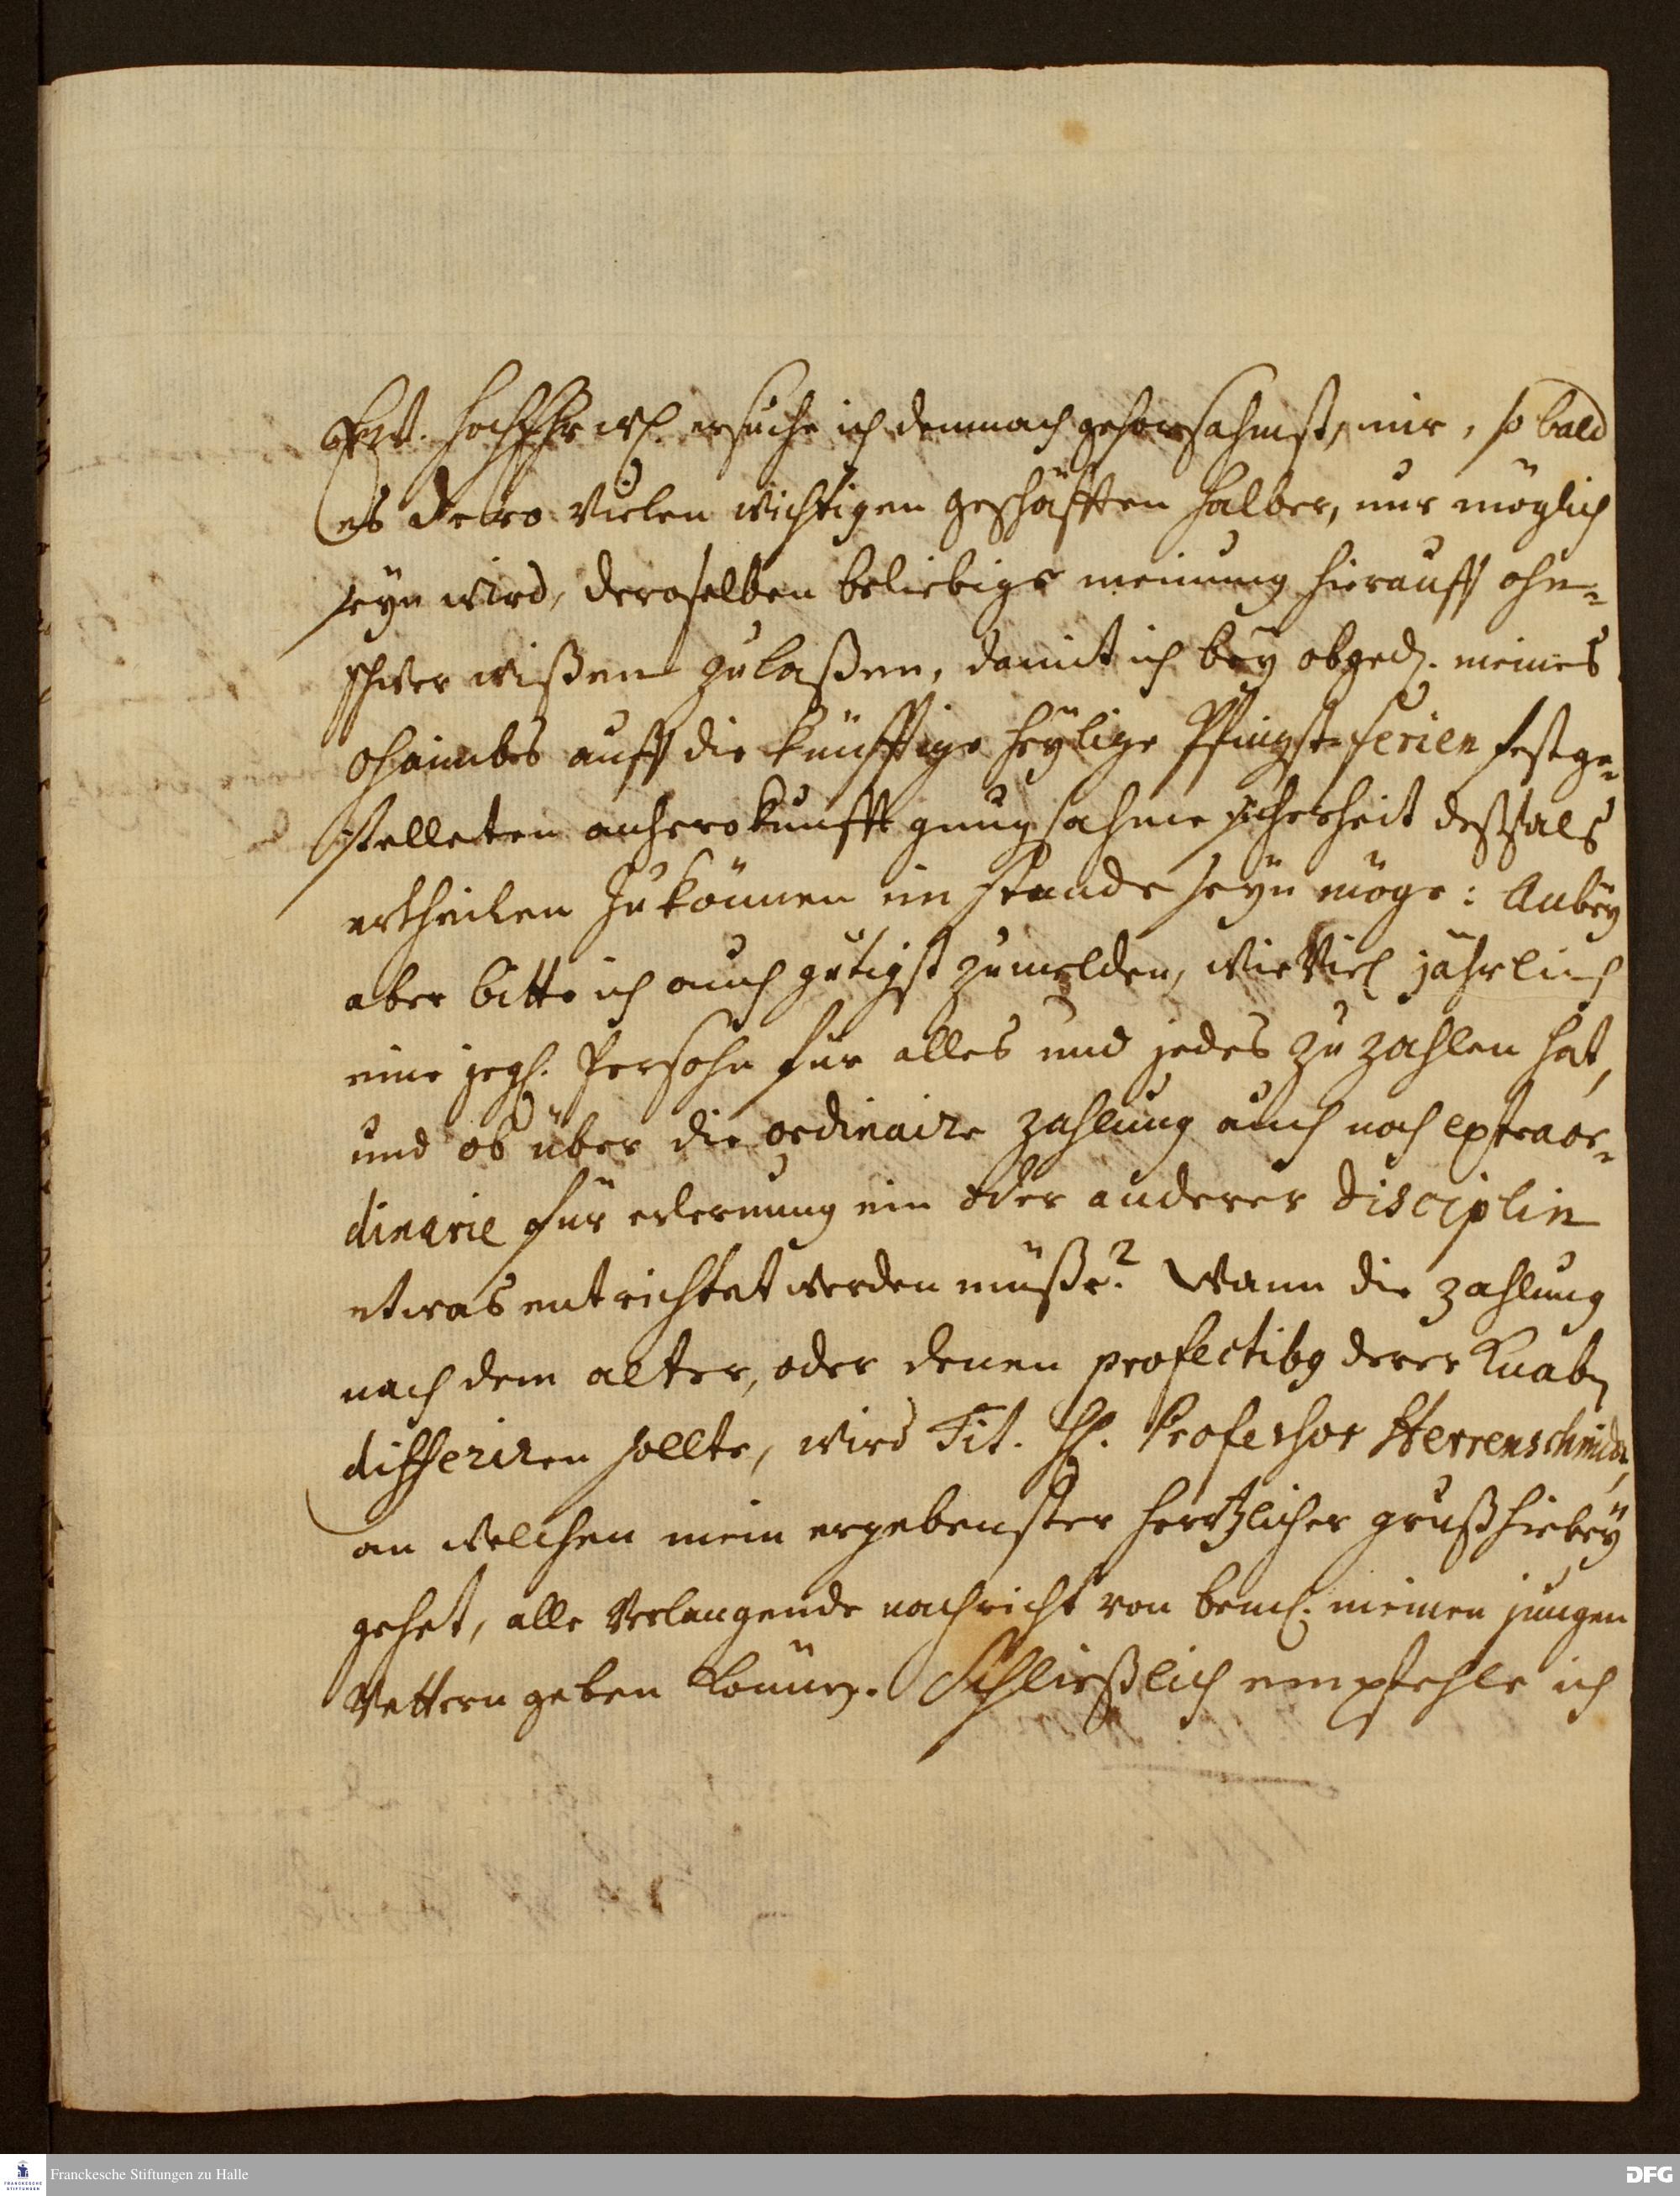 Ewr. HochEhrwl. ersuche ich demnach gehorsahmst, mir, so bald
es dero vielen wichtigen geschäfften halber, nur möglich
seyn wird, deroselben beliebige meinung hierauff ohn-
schwer wißen zulaßen, damit ich bey obged. meines
Ohaimbs auff die künfftige heylige Pfingst-ferien festge-
stelleten anherokunfft gnugsahme sicherheit deßfals
ertheilen zukönnen im stande seyn möge: Anbey
aber bitte ich auch gütigst zumelden, wie viel jährlich
eine jegl. Persohn für alles und jedes zu zahlen hat,
und ob über die ordinaire zahlung auch noch extraor-
dinarie für erlernung ein oder anderer disciplin
etwas entrichtet werden müße? Wann die zahlung
nach dem alter, oder denen profectibg derer Knabn
differiren sollte, wird Tit. H. Professor Herrenschmidt,
an welchen mein ergebenster hertzlicher gruß hiebey
gehet, alle verlangende nachricht von beml. meinen jungen
Vettern geben können. Schließlich empfehle ich
Franckesche Stiftungen zu Halle
DFG